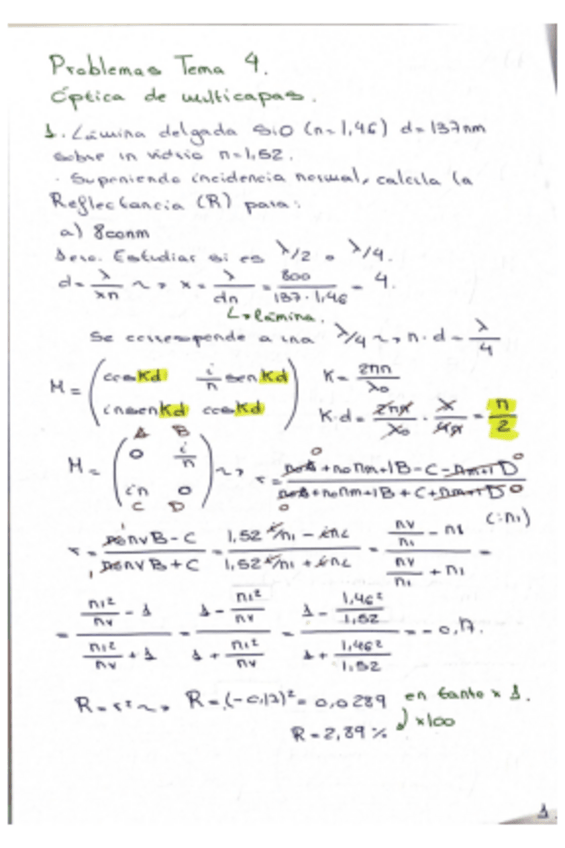 Problemas Tema 4.
Óptica de multicapas.
1. Lámina delgada SiO (n=1,46) d=137nm
sobre un vidrio n=1,52.
· Suponiendo incidencia normal, calcula la
Reflectancia (R) para:
a) 800nm
Estudiar si es λ/2 o λ/4.
d = λ/xn ~> x = λ/dn = 800/137·1,46 = 4.
↳ Lámina.
Se corresponde a una λ/4 ~> n·d = λ/4
M = ( cos Kd i/n sen Kd K = 2πn/λ0
in sen Kd cos Kd ) K·d = 2πn/λ0 · λ/4n = π/2
A B
M = ( 0 i/n ~> r = n0A + n0nm+1B - C - nm+1D / n0A + n0nm+1B + C + nm+1D
in 0 )
C D
r = n0nvB - C / n0nvB + C = 1,52 i/n1 - in1 / 1,52 i/n1 + in1 = nv/n1 - n1 / nv/n1 + n1 = (:n1)
= n1²/nv - 1 / n1²/nv + 1 = 1 - n1²/nv / 1 + n1²/nv = 1 - 1,46²/1,52 / 1 + 1,46²/1,52 = -0,17.
R = r² ~> R = (-0,17)² = 0,0289 en tanto x 1.
R = 2,89 % ) x100
1